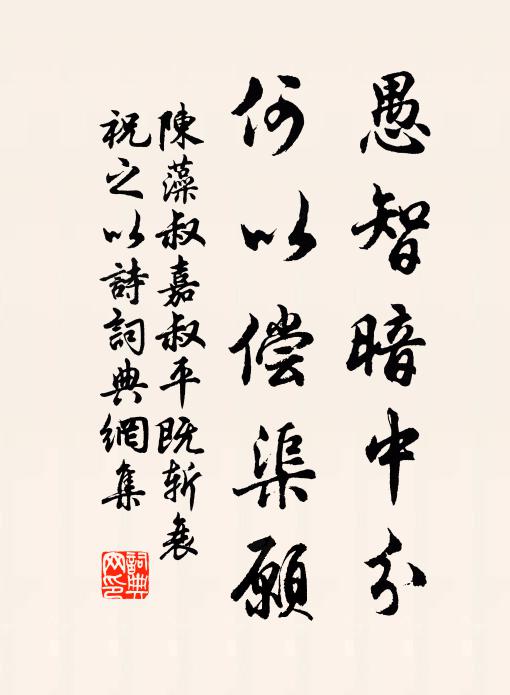 愚智暗中分
何以偿渠願
陳藻叔嘉叔平既斩衰
祝之以詩詞典網集
詞典
网印